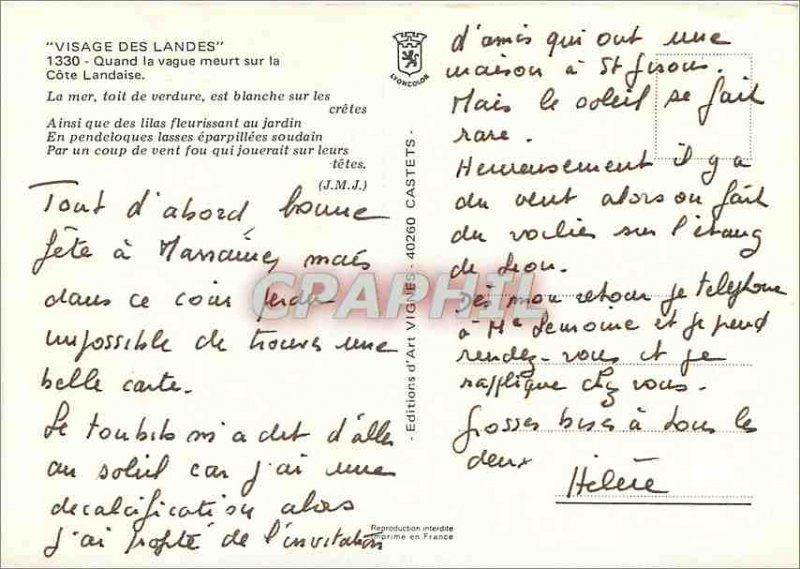 "VISAGE DES LANDES"
1330 - Quand la vague meurt sur la
Côte Landaise.
La mer, toit de verdure, est blanche sur les
crêtes
Ainsi que des lilas fleurissant au jardin
En pendeloques lasses éparpillées soudain
Par un coup de vent fou qui jouerait sur leurs
têtes.
(J.M.J.)
Tout d'abord bonne
fête à mais
dans ce coin perdu
impossible de trouver une
belle carte.
Le toubib m'a dit d'aller
au soleil car j'ai une
decalcification alors
j'ai profité de l'invitation
LYONCOLOR
- Editions d'Art VIGNES - 40260 CASTETS -
Reproduction interdite
Imprimé en France
CPAPHIL
d'amis qui ont une
maison à St Girons.
Mais le soleil se fait
rare.
Heureusement il y a
du vent alors on fait
du voilier sur l'étang
de Leon.
Dès mon retour je telephone
à Me Lemoine et je prend
rendez-vous et je
rapplique chez vous.
Grosses bises à tous les
deux
Hélène